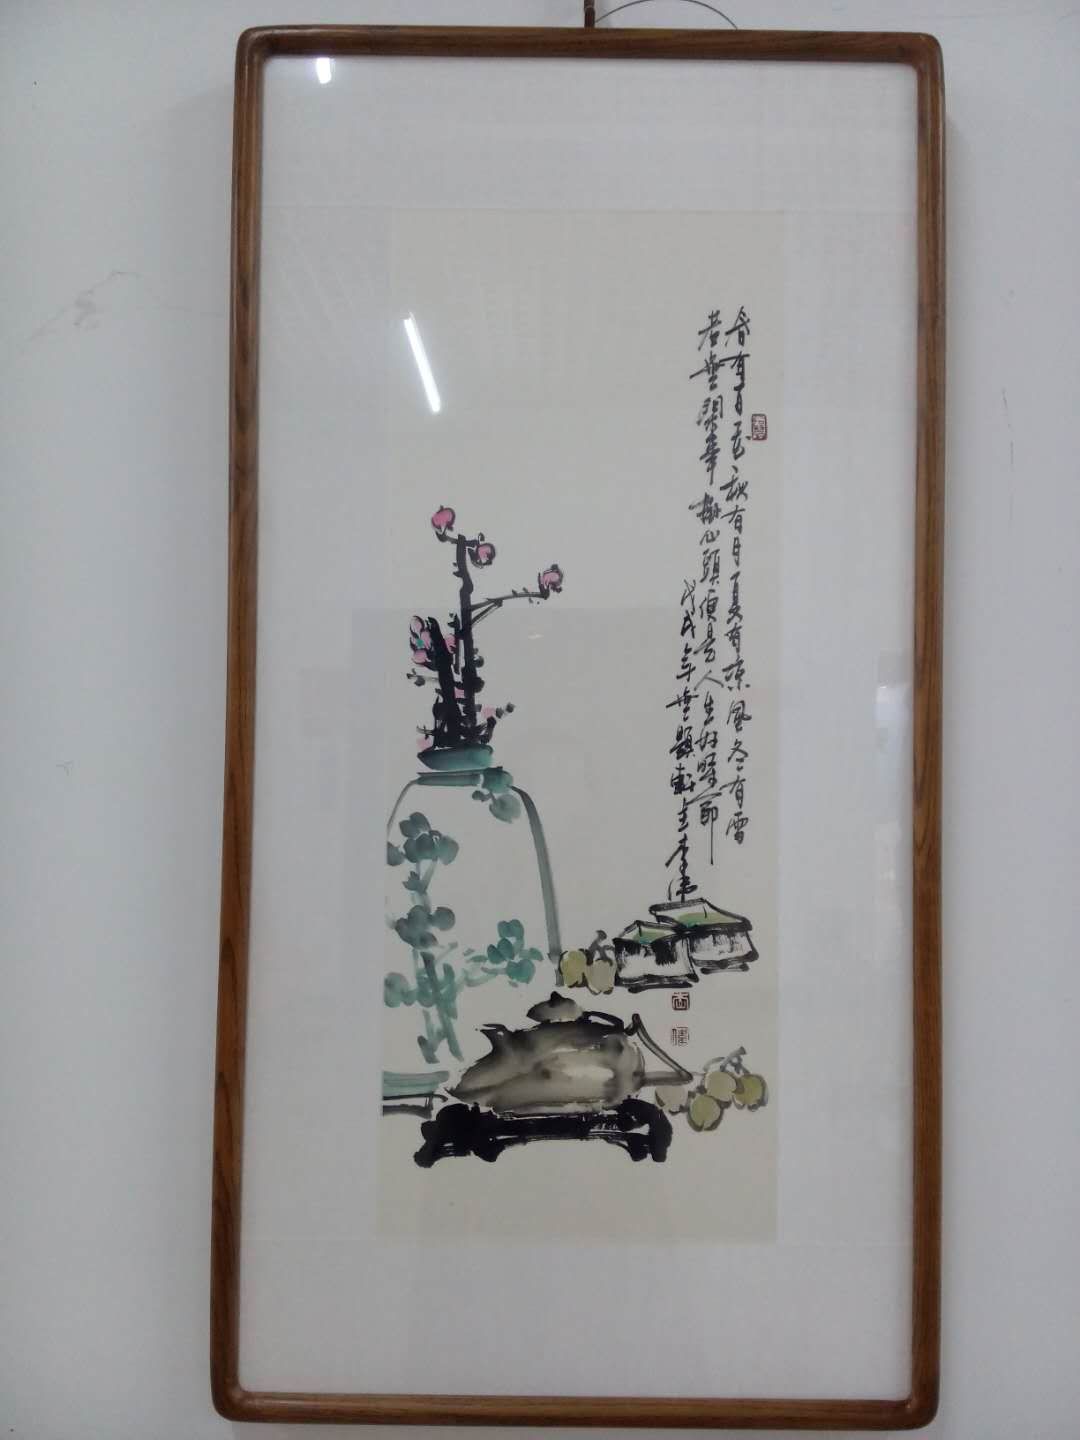 春有百花秋有月夏有凉风冬有雪
若无闲事挂心头便是人生好时节
戊戌年无题轩主李伟